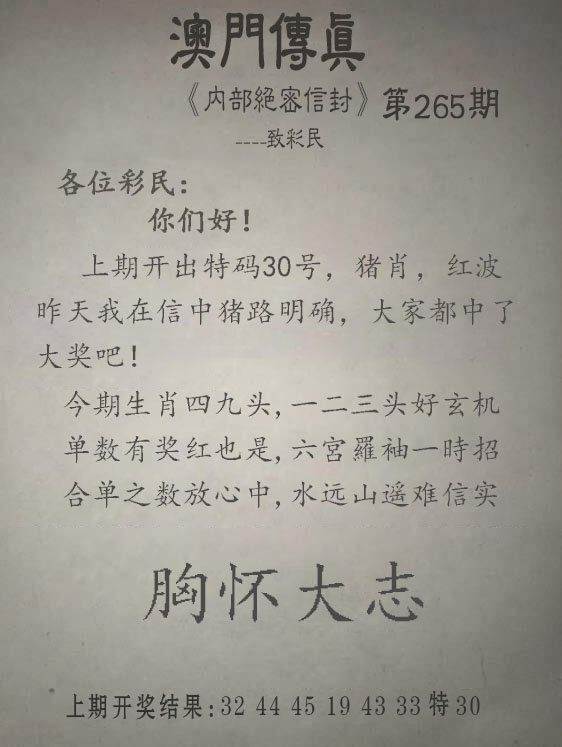 澳門傳眞
《内部絕密信封》第265期
----致彩民
各位彩民:
你们好!
上期开出特码30号，猪肖，红波
昨天我在信中猪路明确，大家都中了
大奖吧!
今期生肖四九头,一二三头好玄机
单数有奖红也是,六宫羅袖一時招
合单之数放心中,水远山遥难信实
胸怀大志
上期开奖结果:32 44 45 19 43 33 特 30